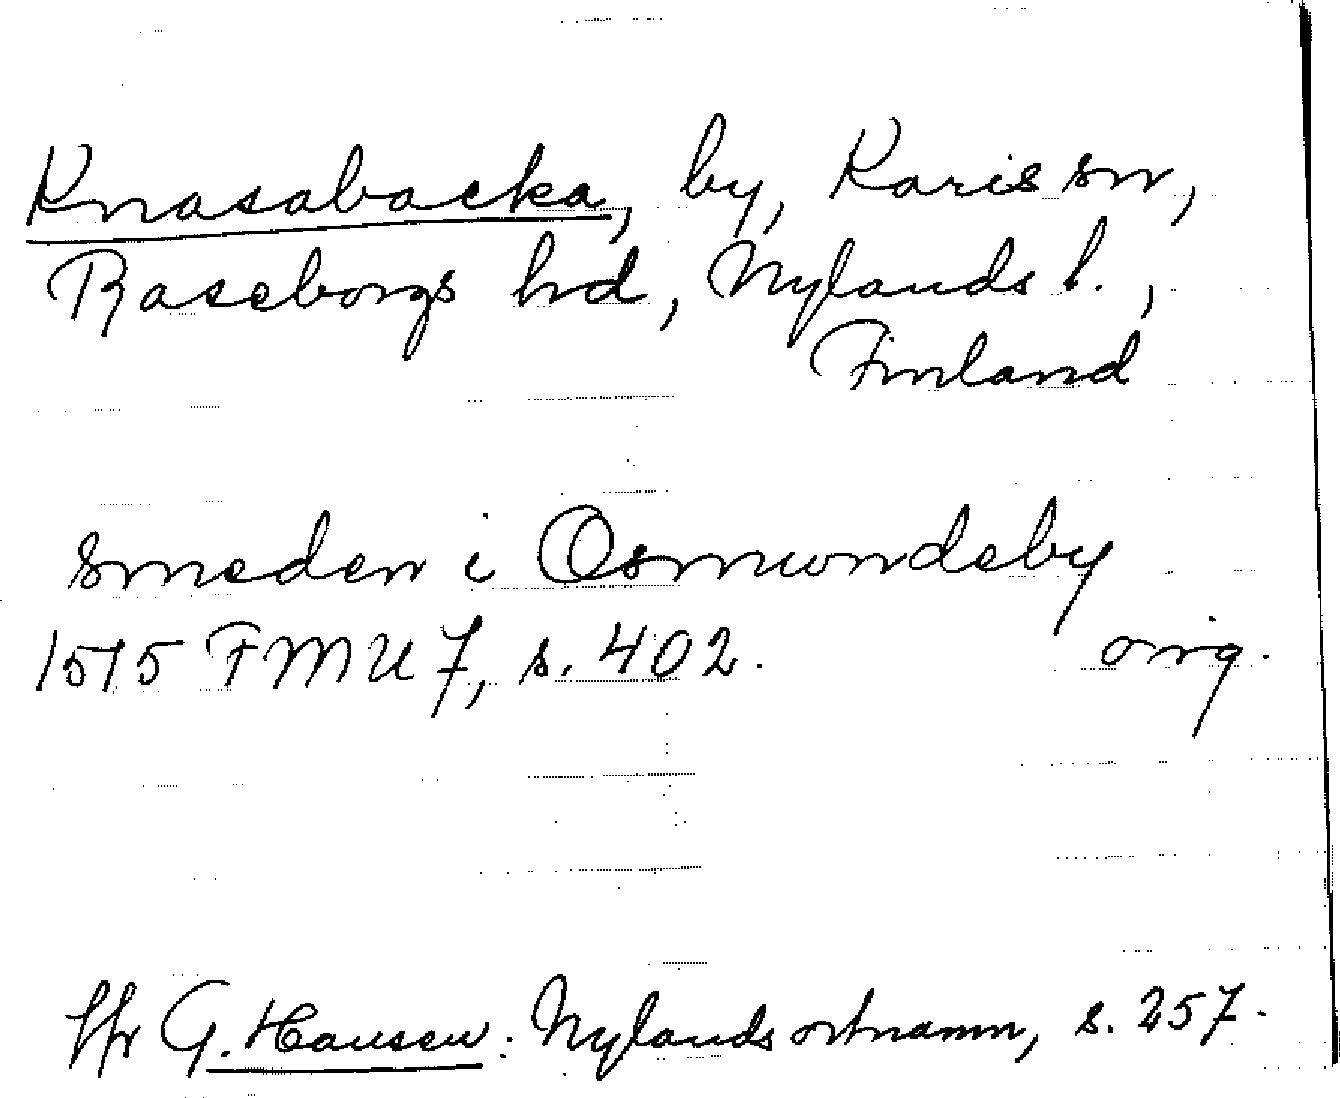 Knasabacka, by, Karis sn,
Raseborgs hd, Nylands l.,
Finland
smeden i Osmundsby
1515 FMU 7, s. 402. orig.
Jfr G. Hausen: Nylands ortnamn, s. 257.